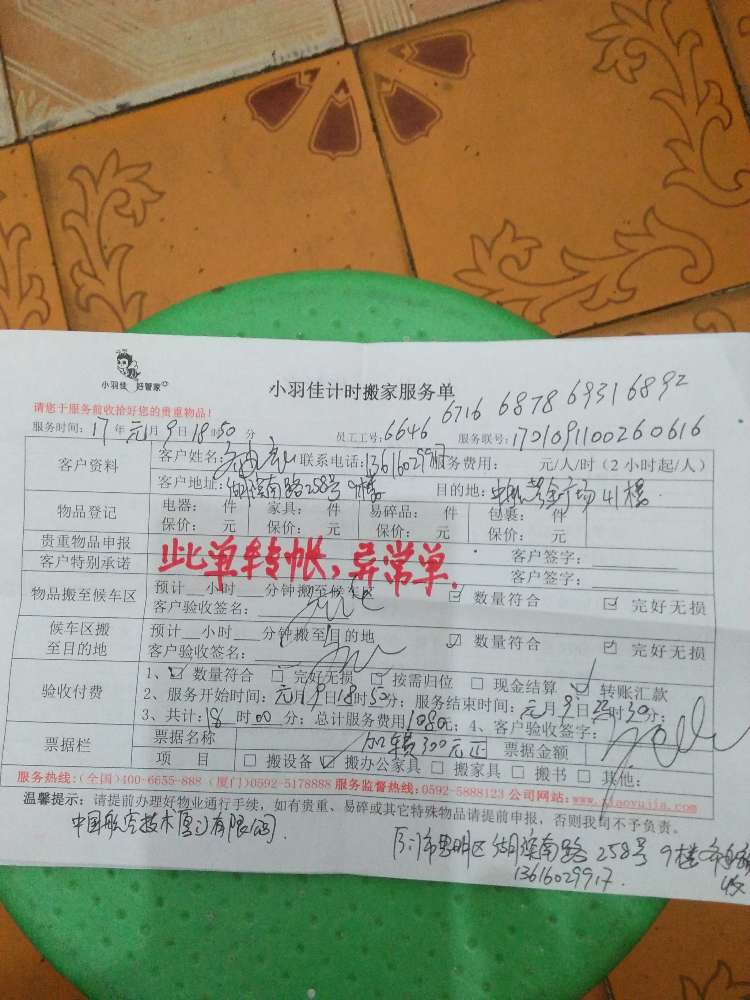 小羽佳 好管家
小羽佳计时搬家服务单
请您于服务前收拾好您的贵重物品!
6716 6878 6931 6892
服务时间: 17 年 元月 9 日 18 时 50 分 员工工号: 6646 服务联号: 170109110026 0616
客户资料 客户姓名: 联系电话: 13616029917 服务费用: 元/人/时 (2 小时起/人)
客户地址: 湖滨南路258号9楼 目的地: 中航紫金广场41楼
物品登记 电器: 件 家具: 件 易碎品: 件 包裹: 件
保价: 元 保价: 元 保价: 元 保价: 元
贵重物品申报 客户签字:
此单转帐,异常单.
客户特别承诺 客户签字:
物品搬至候车区 预计__小时___分钟搬至候车区 ☑ 数量符合 ☑ 完好无损
客户验收签名:
候车区搬至目的地 预计__小时___分钟搬至目的地 ☑ 数量符合 ☑ 完好无损
客户验收签名:
验收付费 1、☑ 数量符合 □ 完好无损 ☑ 按需归位 □ 现金结算 ☑ 转账汇款
2、服务开始时间: 元月9日18时50分; 服务结束时间: 元月9日 时30分;
3、共计: 18 时 00 分; 总计服务费用1080元; 4、客户验收签字:
票据栏 票据名称 加车费300元正 票据金额
项 目 □ 搬设备 ☑ 搬办公家具 □ 搬家具 □ 搬书 □ 其他:
服务热线: (全国)400-6635-888 (厦门)0592-5178888 服务监督热线: 0592-5888123 公司网站: www.xiaoyujia.com
温馨提示: 请提前办理好物业通行手续, 如有贵重、易碎或其它特殊物品请提前申报, 否则我司不予负责。
中国航空技术厦门有限公司
厦门市思明区湖滨南路258号9楼
13616029917. 收